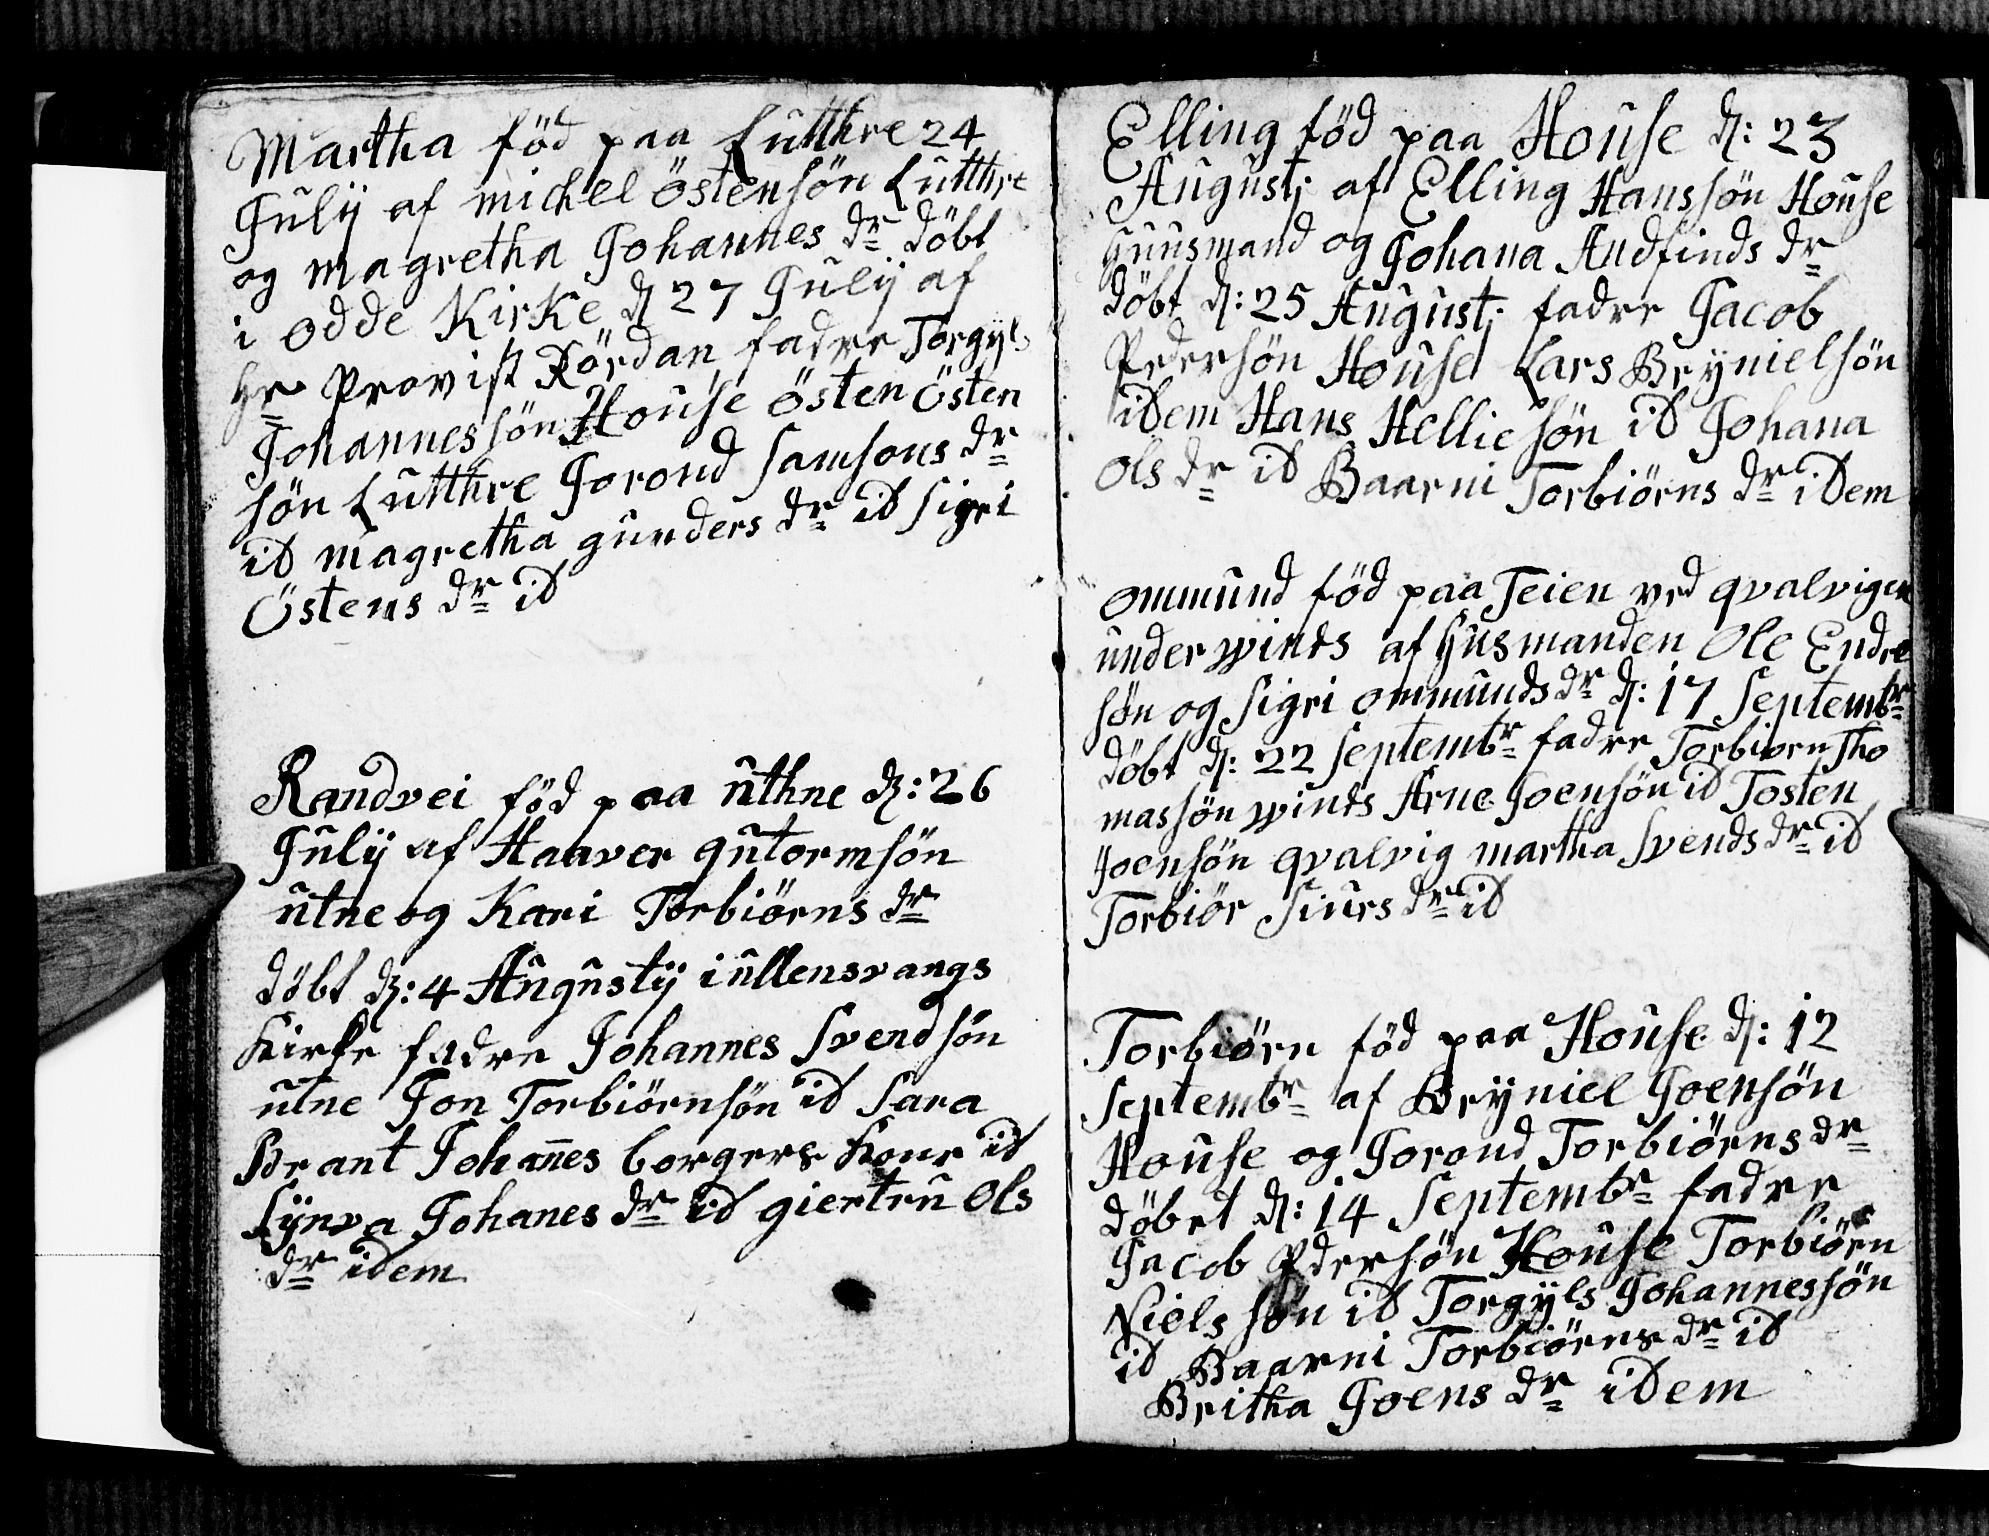 Martha föd paa Lutthre 24
July af michel Östensön Lutthre
og magretha Johannes dr döbt
i Odde Kirke d 27 July af
Hr Provist Rördan fadre Torgÿls
Johannessön House Östen Östen
sön Lutthre Jorond Samsons dr
id magretha gunders dr id Sigri
Östens dr id
Randvei föd paa uthne d: 26
July af Haaver gutormsön
utne og Kari Torbiörns dr
döbt d: 4 Augustÿ i ullensvangs
Kirke fadre Johannes Svendsön
utne Jon Torbiörnsön id Sara
Brant Johañes borgers Kone id
Synva Johanes dr id giertru Ols
dr idem
Elling föd paa House d: 23
Augusti af Elling Hanssön House
Huusmand og Johana Andfinds dr
döbt d: 25 Augusti fadre Jacob
Pedersön House Lars Brÿnielsön
idem Hans Helliesön id Johana
Ols dr id Baarni Torbiörns dr idem
ommund föd paa Teien ved qvalvigen
under winds af Husmanden Ole Endre
søn og Sigri ommunds dr d: 17 Septembr
døbt d: 22 Septembr fadre Torbiorn Tho
massön winds Arne Joensön id Tosten
Joensön qvalvig martha Svends dr id
Torbiör Siurs dr id
Torbiörn föd paa House d: 12
Septembr af Brÿniel Joensön
House og Jorond Torbiørns dr
døbet d: 14 Septembr fadre
Jacob Pdersøn House Torbiörn
Nielssøn id Torgÿls Johannessön
id Baarni Torbiörns dr id
Britha Joens dr idem